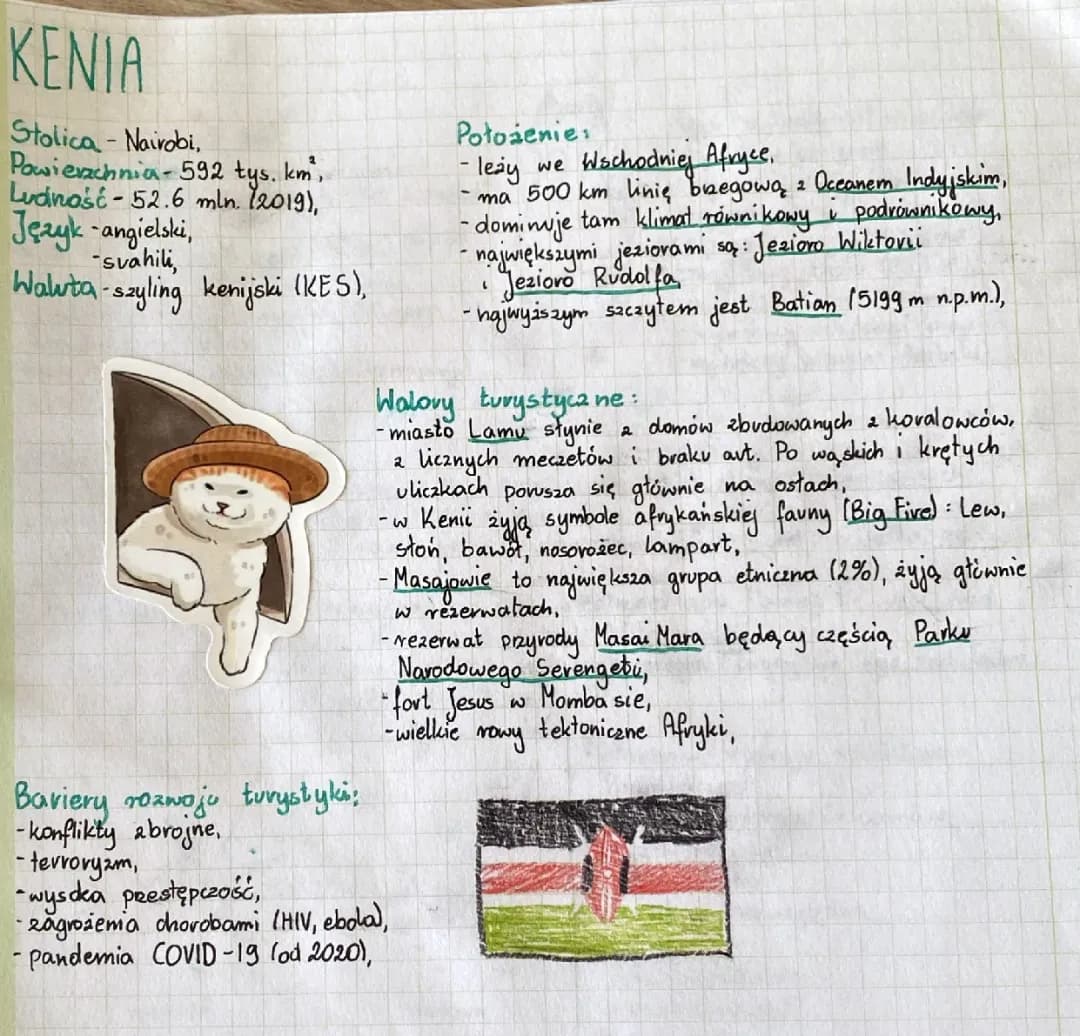 KENIA
Stolica - Nairobi,
Powierzchnia - 592 tys. km²,
Ludność - 52.6 mln. (2019),
Język - angielski,
- svahili,
Waluta - szyling kenijski (KES),
Położenie:
- leży we Wschodniej Afryce,
- ma 500 km linię brzegową z Oceanem Indyjskim,
- dominuje tam klimat równikowy i podrównikowy,
- największymi jeziorami są: Jezioro Wiktorii
i Jezioro Rudolfa,
- najwyższym szczytem jest Batian (5199 m n.p.m.),
Walory turystyczne:
- miasto Lamu słynie z domów zbudowanych z koralowców,
z licznych meczetów i braku aut. Po wąskich i krętych
uliczkach porusza się głównie na osłach,
- w Kenii żyją symbole afrykańskiej fauny (Big Five): Lew,
słoń, bawół, nosorożec, lampart,
- Masajowie to największa grupa etniczna (2%), żyją głównie
w rezerwatach,
- rezerwat przyrody Masai Mara będący częścią Parku
Narodowego Serengeti,
- fort Jesus w Mombasie,
- wielkie rowy tektoniczne Afryki,
Bariery rozwoju turystyki:
- konflikty zbrojne,
- terroryzm,
- wysoka przestępczość,
- zagrożenia chorobami (HIV, ebola),
- pandemia COVID-19 (od 2020),